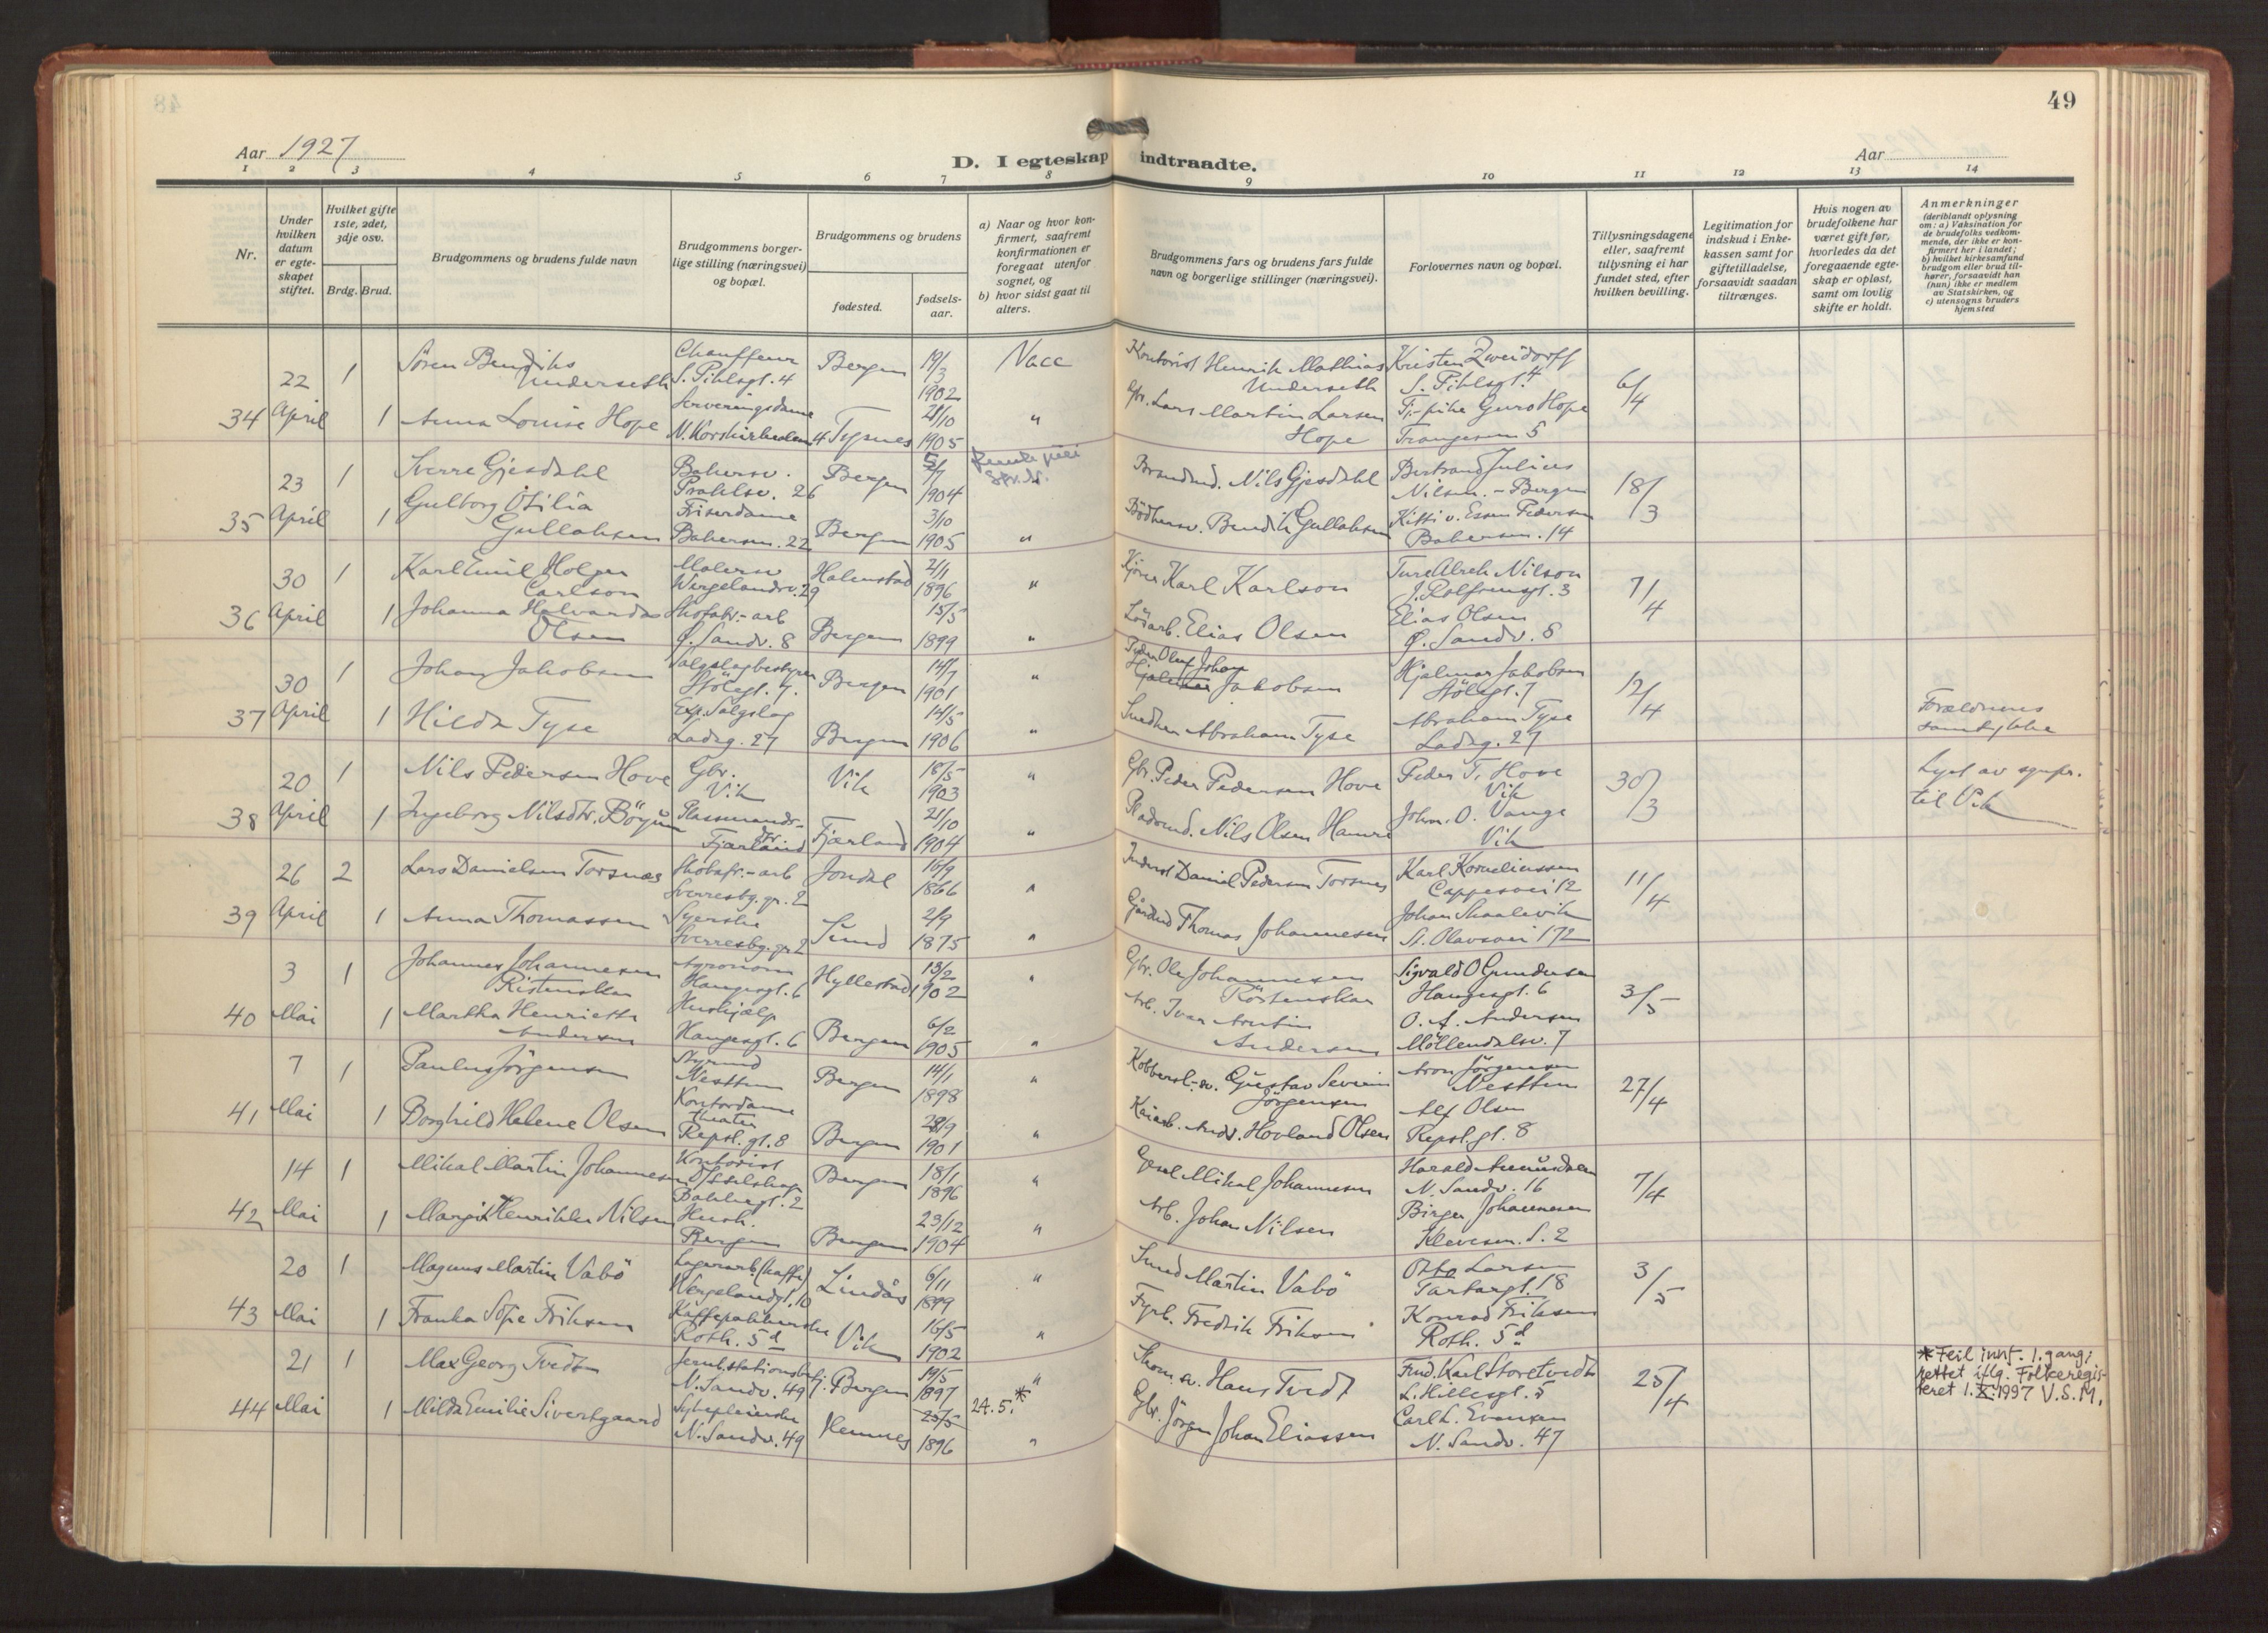 48
49
Aar 1927
D. I egteskap indtraadte.
Aar
1 2 3 4 5 6 7 8 9 10 11 12 13 14
Nr.
Under hvilken datum er egte-skapet stiftet.
Hvilket gifte 1ste, 2det, 3dje osv.
Brdg. Brud.
Brudgommens og brudens fulde navn
Brudgommens borger-lige stilling (næringsvei) og bopæl.
Brudgommens og brudens
fødested.
fødsels-aar.
a) Naar og hvor kon-firmert, saafremt konfirmationen er foregaat utenfor sognet, og
b) hvor sidst gaat til alters.
Brudgommens fars og brudens fars fulde navn og borgerlige stillinger (næringsvei).
Forlovernes navn og bopæl.
Tillysningsdagene eller, saafremt tillysning ei har fundet sted, efter hvilken bevilling.
Legitimation for indskud i Enke-kassen samt for giftetilladelse, forsaavidt saadan tiltrænges.
Hvis nogen av brudefolkene har været gift før, hvorledes da det foregaaende egte-skap er opløst, samt om lovlig skifte er holdt.
Anmerkninger
(deriblandt oplysning om: a) Vaksination for de brudefolks vedkom-mende, der ikke er kon-firmert her i landet;
b) hvilket kirkesamfund brudgom eller brud til-hører, forsaavidt han (hun) ikke er medlem av Statskirken, og
c) utensogns bruders hjemsted
34 22 April 1 Søren Bendiks Underseth Chauffeur S. Pihlsgt. 4 Bergen 19/3 1902 Kontorist Henrik Mathias Underseth Kristen Zweidorff S. Pihlsgt. 4 6/4
1 Anna Louise Hope Serveringsdame N. Korskirkealm. 4 Tysnes 21/10 1905 " Gbr. Lars Martin Larsen Hope Tj.-pike Guro Hope Trangesm 5
35 23 April 1 Sverre Gjesdahl Bakersv. Prahlsv. 26 Bergen 5/7 1904 Brandmd. Nils Gjesdahl Bertrand Julius Nilsen. - Bergen 18/3
1 Gulborg Otilia Gullaksen Friserdame Bakersm. 22 Bergen 3/10 1905 " Bødkersv. Bendik Gullaksen Kitti v. Essen Pedersen Bakersm. 14
36 30 April 1 Karl Emil Holger Carlson Malersv Wergelandsv. 29 Halmstad 2/1 1896 " Kjører Karl Karlson Ture Alrek Nilson J. Rolfsensgt. 3 7/4
1 Johanna Halvarda Olsen Skofabr.-arb Ø. Sandv. 8 Bergen 15/5 1899 " Løsarb. Elias Olsen Elias Olsen Ø. Sandv. 8
37 30 April 1 Johan Jakobsen Salgslagbestyrer Stölegt. 7. Bergen 14/7 1901 " Peder Oluf Johan Hjalmar Jakobsen Hjalmar Jakobsen Stölegt. 7 12/4
1 Hilda Tyse Exp. Salgslag Ladeg. 27 Bergen 14/5 1906 " Snedker Abraham Tyse Abraham Tyse Ladeg. 27 Forældrenes samtykke
38 20 April 1 Nils Pedersen Hove Gbr. Vik Vik 18/5 1903 " Gbr. Peder Pedersen Hove Peder T. Hove Vik 30/3 Lyst av sognpr. til Vik
1 Ingeborg Nilsdtr. Böyum Plassmands-dtr. Fjærland Fjærland 21/10 1904 " Pladsmd. Nils Olsen Hamre John. O. Vange Vik
39 26 April 2 Lars Danielsen Torsnes Skofabr.-arb Sverresbg. gr. 2 Jondal 16/9 1866 " Inderst Daniel Pedersen Torsnes Karl Korneliussen Cappesvei 12 11/4
1 Anna Thomassen Syerske Sverresbg. gr 2 Sund 2/9 1875 " Gårdmd Thomas Johannesen Johan Skaalevik St. Olavsvei 172
40 3 Mai 1 Johannes Johannesen Ristenskar Agronom Haugesgt. 6 Hyllestad 13/2 1902 " Gbr. Ole Johannesen Röstenskar Sigvald O Gundersen Haugesgt. 6 3/5
1 Martha Henriette Andersen Hushjælp Haugesgt. 6 Bergen 6/2 1905 " Arb. Ivar Arntin Andersen O. A. Andersen Möllendalsv. 7
41 7 Mai 1 Paulus Jörgensen Styrmd Nesttun Bergen 14/1 1898 " Kobbersl.-sv. Gustav Severin Jörgensen Aron Jörgensen Nesttun 27/4
1 Borghild Helene Olsen Kontordame theater Repsl. gt. 8 Bergen 28/9 1901 " Kaiarb. Andr. Hovland Olsen Alf Olsen Repsl. gt. 8
42 14 Mai 1 Mikal Martin Johannesen Kontorist D/Sselskap Bakkegt. 2 Bergen 18/1 1896 " Mikal Johannesen Harald Amundsen N. Sandv. 16 7/4
1 Margit Henrikke Nilsen Hush. Bergen Bergen 23/12 1904 " Arb. Johan Nilsen Birger Johannesen Klevesm. S. 2
43 20 Mai 1 Magnus Martin Vabö Lagerarb. (kaffe) Wergelandgt. 10 Lindås 6/11 1899 " Smed Martin Vabö Otto Larsen Tartargt. 18 3/5
1 Franka Sofie Friksen Kaffepakkerske Roth. 5d Vik 16/5 1902 " Fyrb. Fredrik Friksen Konrad Friksen Roth. 5d
44 21 Mai 1 Max Georg Tvedt Jernb.stationsbetj. N. Sandv. 49 Bergen 19/5 1897 " Skom. sv. Hans Tvedt Frid. Karl Storetvedt L. Hillesgt. 5 25/4
1 Milda Emilie Sivertgaard Sykepleierske N. Sandv. 49 Hemnes 25/5 1896 24.5.* " Gbr. Jörgen Johan Eliassen Carl L. Evensen N. Sandv. 47
* Feil innf. 1. gang;
rettet iflg. Folkeregis-
teret 1.X.1997 V.S.M.